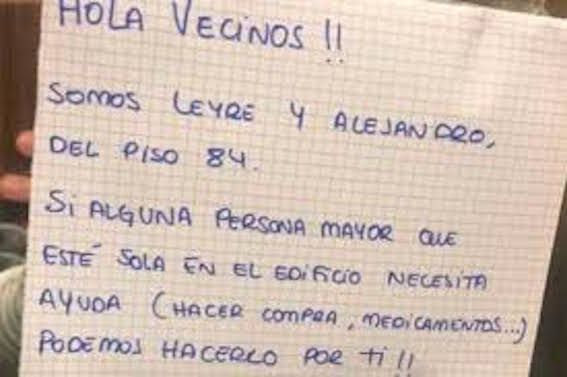 HOLA VECINOS !!
SOMOS LEYRE Y ALEJANDRO,
DEL PISO 84.
SI ALGUNA PERSONA MAYOR QUE
ESTÉ SOLA EN EL EDIFICIO NECESITA
AYUDA (HACER COMPRA, MEDICAMENTOS...)
PODEMOS HACERLO POR TI !!